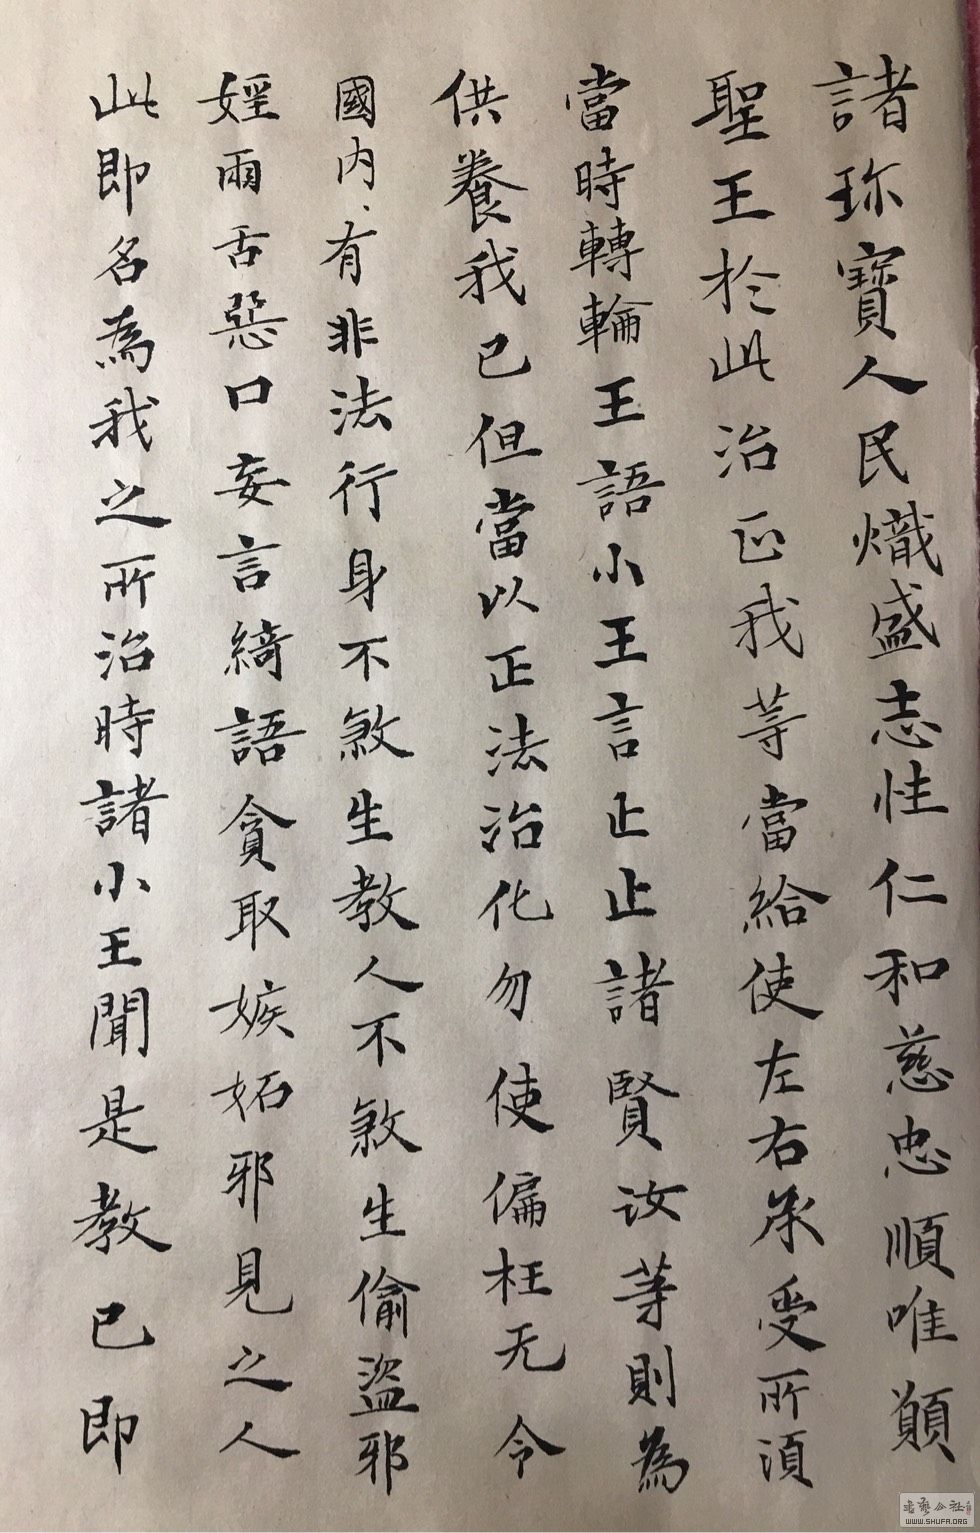 諸珎寶人民熾盛志性仁和慈忠順唯願
聖王於此治正我等當給使左右承受所湏
當時轉輪王語小王言止止諸賢汝等則為
供養我已但當以正法治化勿使偏枉无令
國內有非法行身不煞生教人不煞生偷盜邪
婬兩舌惡口妄言綺語貪取嫉妬邪見之人
此即名為我之所治時諸小王聞是教已即
書藝公社
WWW.SHUFA.ORG